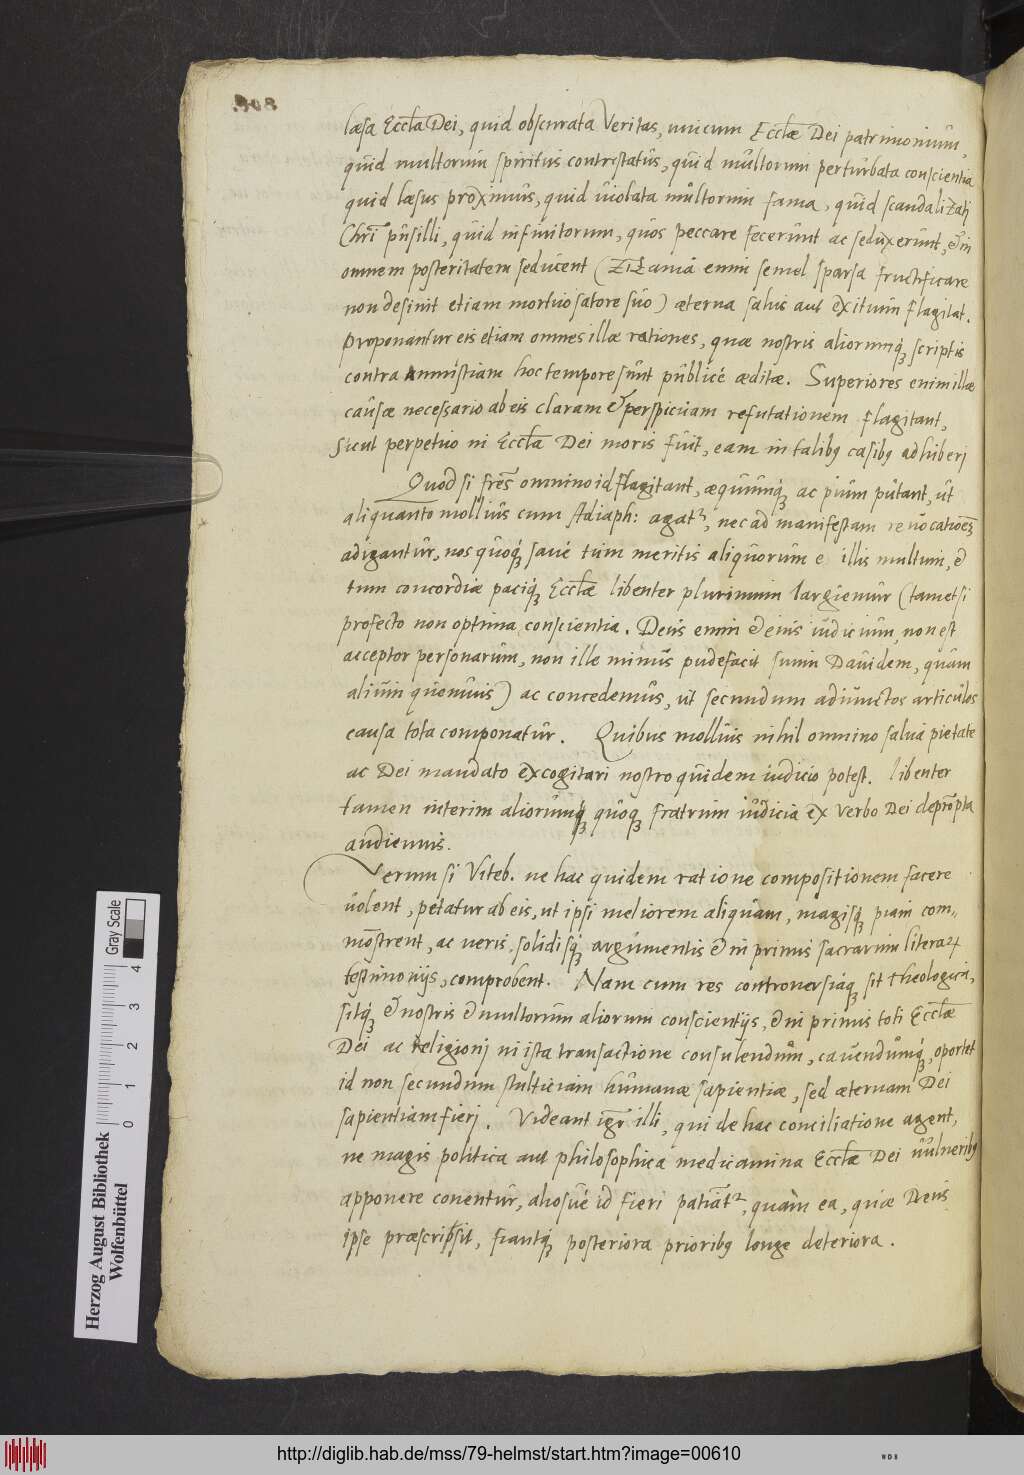 læsa Eccl̃a Dei, quid obscurata Veritas, unicum Eccl̃æ Dei patrimonium,
quid multorum spiritus contristatus, quid multorum perturbata conscientia
quid læsus proximus, quid uiolata multorum fama, quid scandalizati
Chr̃i pusilli, quid infinitorum, quos peccare fecerunt ac seduxerunt, & in
omnem posteritatem seducent (Zizania enim semel sparsa fructificare
non desinit etiam mortuo satore suo) æterna salus aut exitium flagitat.
Proponantur eis etiam omnes illæ rationes, quæ nostris aliorumq́ꝫ scriptis
contra Amnistiam hoc tempore sunt publicè æditæ. Superiores enim illæ
causæ necessario ab eis claram & perspicuam refutationem flagitant,
Sicut perpetuo in Eccl̃a Dei moris fuit, eam in talibꝫ casibꝫ adhiberj
Quod si fr̃es omnino id flagitant, æquumq́ꝫ ac pium putant, ut
aliquanto mollius cum Adiaph: agat², nec ad manifestam reuocatioēꝫ
adigantur, nos quoq́ꝫ sanè tum meritis aliquorum e illis multum, &
tum concordiæ paciq́ꝫ Eccl̃æ libenter plurimum largiemur (tametsi
profecto non optima conscientia. Deus enim & eius iudicium, non est
acceptor personarum, non ille minus pudefacit suum Dauidem, quam
alium quemuis) ac concedemus, ut secundum adiunctos articulos
causa tota componatur. Quibus mollius nihil omnino salua pietate
ac Dei mandato excogitari nostro quidem iudicio potest. libenter
tamen interim aliorumq́ꝫ quoqꝫ fratrum iudicia ex verbo Dei deprom̃pta
audiemus.
Verum si Viteb. ne hac quidem ratione compositionem facere
uolent, petatur ab eis, ut ipsi meliorem aliquam, magisq́ꝫ piam com„
monstrent, ac ueris solidisq́ꝫ argumentis & in primis sacrarum literaꝝ
testimonijs, comprobent. Nam cum res controuersiaq́ꝫ sit theologica,
sitq́ꝫ & nostris & multorum aliorum conscientijs, & in primis toti Eccl̃æ
Dei ac religionj in ista transactione consulendum, cauendumq́ꝫ, oportet
id non secundum stulticiam humanæ sapientiæ, sed æternam Dei
sapientiam fierj. Videant igr̃ illi, qui de hac conciliatione agent,
ne magis politica aut philosophica medicamina Eccl̃æ Dei uulneribꝫ
apponere conentur, aliosuè id fieri patiāt², quàm ea, quæ Deus
ipse præscripsit, fiantq́ꝫ posteriora prioribꝫ longe deteriora.
Herzog August Bibliothek
Wolfenbüttel
0 1 2 3 4
Gray Scale
http://diglib.hab.de/mss/79-helmst/start.htm?image=00610